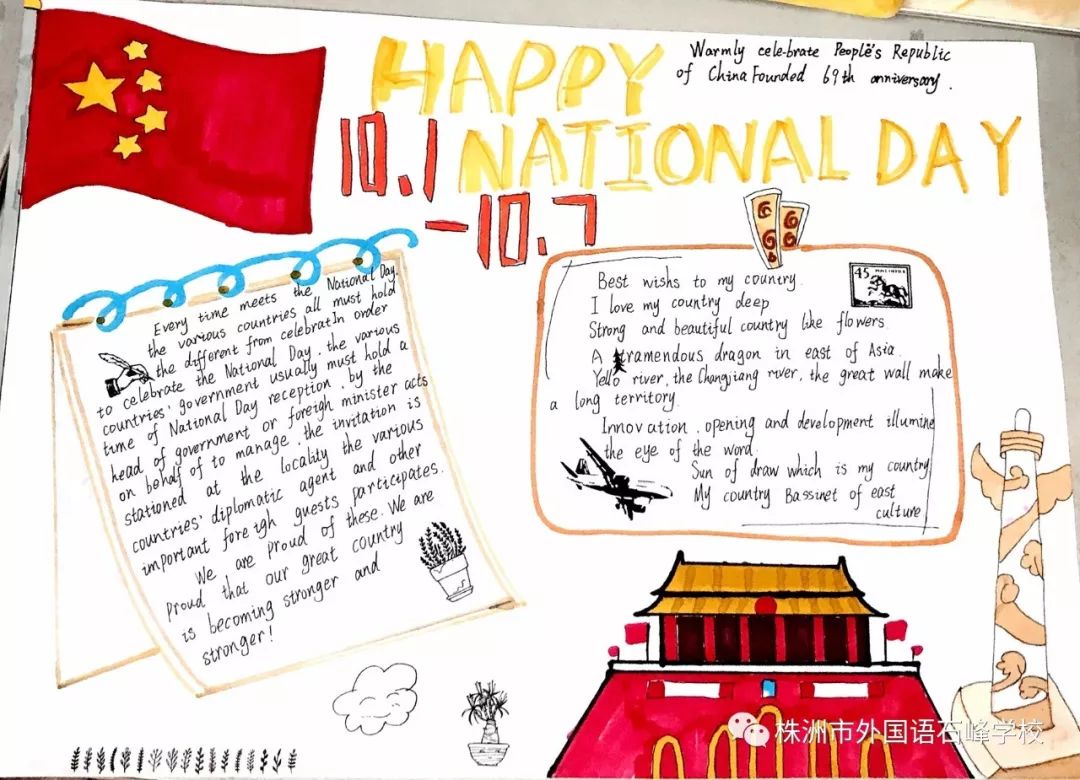 HAPPY
Warmly celebrate People's Republic
of China Founded 69th anniversary.
10.1 NATIONAL DAY
-10.7
Every time meets the National Day.
the various countries all must hold
the different from celebratIn order
to celebrate the National Day, the various
countries' government usually must hold a
time of National Day reception, by the
head of government or foreigh minister acts
on behalf of to manage, the invitation is
stationed at the locality the various
countries' diplomatic agent and other
important foreigh guests participates.
We are proud of these. We are
proud that our great country
is becoming stronger and
stronger!
45
Best wishs to my country.
I love my country deep
Strong and beautiful country like flowers.
A tramendous dragon in east of Asia.
Yello river, the Changjiang river, the great wall make
a long territory.
Innovcation, opening and development illumine
the eye of the word.
Sun of draw which is my country
My country Bassinet of east
culture
株洲市外国语石峰学校